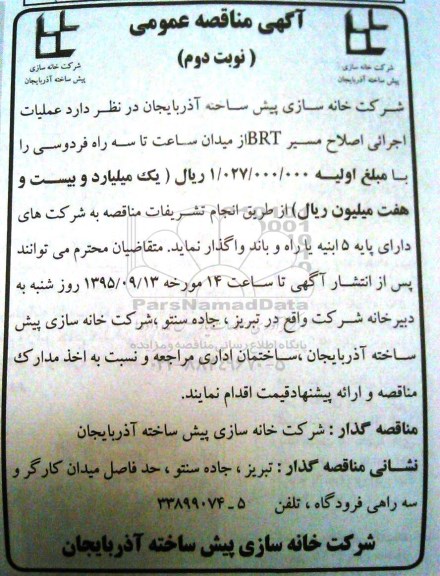 آگهی مناقصه عمومی
( نوبت دوم)
شرکت خانه سازی
پیش ساخته آذربایجان
شرکت خانه سازی
پیش ساخته آذربایجان
شرکت خانه سازی پیش ساخته آذربایجان در نظر دارد عملیات
اجرائی اصلاح مسیر BRTاز میدان ساعت تا سه راه فردوسی را
با مبلغ اولیه ۱/۰۲۷/۰۰۰/۰۰۰ ریال ( یک میلیارد و بیست و
هفت میلیون ریال) از طریق انجام تشریفات مناقصه به شرکت های
دارای پایه ۵ ابنیه یا راه و باند واگذار نماید. متقاضیان محترم می توانند
پس از انتشار آگهی تا ساعت ۱۴ مورخه ۱۳۹۵/۰۹/۱۳ روز شنبه به
دبیرخانه شرکت واقع در تبریز ، جاده سنتو ،شرکت خانه سازی پیش
ساخته آذربایجان ،ساختمان اداری مراجعه و نسبت به اخذ مدارک
مناقصه و ارائه پیشنهادقیمت اقدام نمایند.
مناقصه گذار : شرکت خانه سازی پیش ساخته آذربایجان
نشانی مناقصه گذار : تبریز ، جاده سنتو ، حد فاصل میدان کارگر و
سه راهی فرودگاه ، تلفن ۵ ـ ۳۳۸۹۹۰۷۴
شرکت خانه سازی پیش ساخته آذربایجان
ParsNamadData
پایگاه اطلاع رسانی مناقصه و مزایده